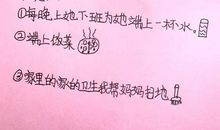 ①每晚上她下班为她端上一杯水。
②端上做菜
③家里的家的卫生我帮妈妈扫地